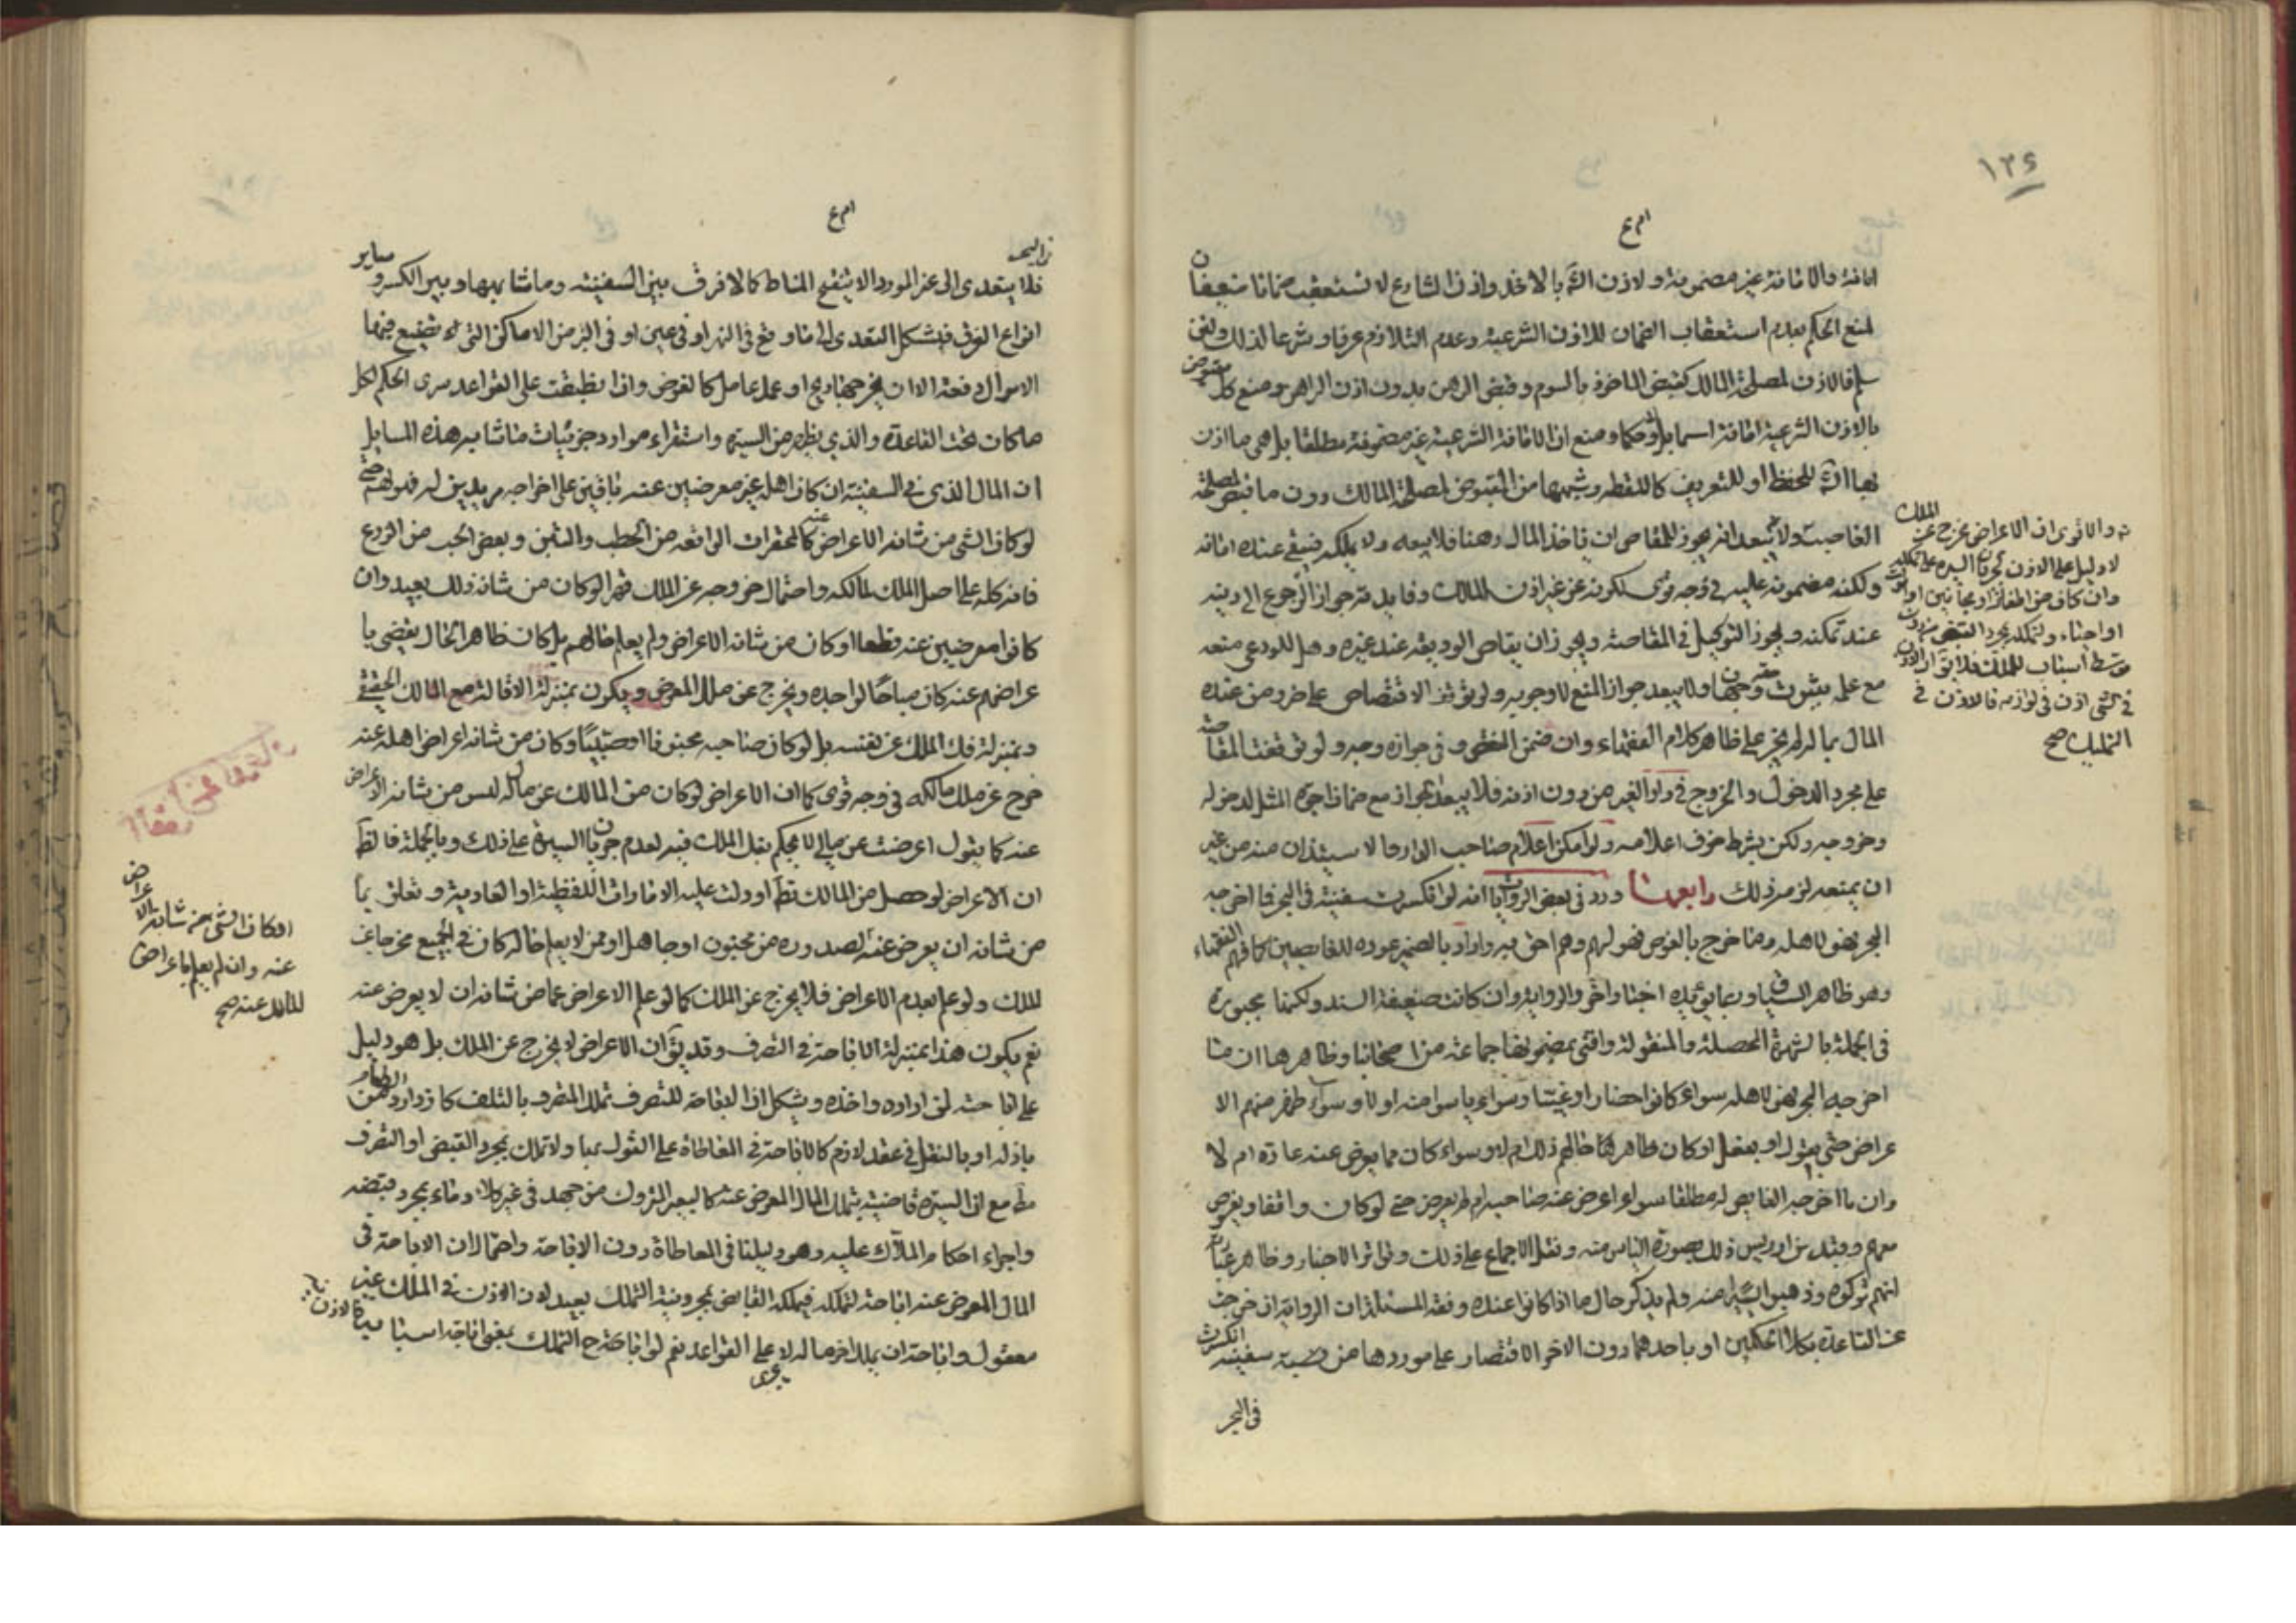 ١٣٤
امانة والامانة غير مضمونة ولاذن الله بالاخذ واذن الشارع لا تستعقب ضمانا ضعيفان
لمنع الحكم بعدم استعقاب الضمان للاذن الشرعية وعدم التلازم عرفا وشرعا لذلك ولئن
سلم فالاذن لمصلحة المالك كقبض الماخوذ بالسوم وقبض الرهن بدون اذن الراهن ومنع كل مقبوض
بالاذن الشرعية امانة اسما بل وحكما ومنع ان الامانة الشرعية غير مضمونة مطلقا بل هي ما اذن
فيها الله للحفظ او للتعريف كاللقطة وشبهها من المقبوض لمصلحة المالك دون ما قبض لمصلحة
الغاصب ولا يبعد انه يجوز للمقاص ان ياخذ المال رهنا فلا يبيعه ولا يملكه فيبقى عنده امانة
ولكنه مضمونة عليه في وجه قوى لكونه عن غير اذن المالك وفايدته جواز الرجوع الى دينه
عند تمكنه ويجوز التوكيل في المقاصة ويجوز ان يقاص الوديعة عند غيره وهل للودعي منعه
مع علمه بثبوت حقه وجهان ولا يبعد جواز المنع لا وجوبه ولو توقف الاقتصاص على خرد من عنده
المال بما لم يجز على ظاهر كلام الفقهاء وان ضمن النقص وفي جوازه وجه ولو توقفت المقاصة
على مجرد الدخول والخروج في دار الغير من دون اذنه فلا يبعد الجواز مع ضمان اجرة المثل لدخوله
وخروجه ولكن بشرط خوف اعلامه ولو امكن اعلام صاحب الدار حالا استيذان منه من غير
ان يمنعه لزمه ذلك رابعها ورد في بعض الروايات انه لو انكسرت سفينة في البحر فما اخرجه
البحر فهو لاهله وما خرج بالغوص فهو لهم وهم احق به واراد بالضمير عوده للغايصين كما فهم الفقهاء
وهو ظاهر السياق وبما يؤيده اخبار اخر والرواية وان كانت ضعيفة السند ولكنها مجبورة
في الجملة بالشهرة المحصلة والمنقولة وافتى بمضمونها جماعة من اصحابنا وظاهرها ان ما
اخرجه البحر فهو لاهله سواء كانوا حضارا او غيبا وسواء ياسوا منه اولا وسواء ظهر منهم الا
عراض حتى بقول او بفعل او كان ظاهر حالهم ذلك ام لا وسواء كان مما يعرض عنه عادة ام لا
وان ما اخرجه الغايص له مطلقا سواء اعرض عنه صاحبه ام لم يعرض حتى لو كان واقفا ويغوص
معهم وقيد بن ادريس ذلك بصورة الياس منه ونقل الاجماع على ذلك وتواتر الاخبار وظاهر عبارته
انهم تركوه وذهبوا ليئسوا منه ولم يذكر حال ما اذا كانوا عنده وفقه المسئلة ان الرواية ان خرجت
عن القاعدة بكلا الحكمين او باحدهما دون الاخر الاقتصار على موردها من قضية سفينة انكسرت
في البحر
ثم والاقوى ان الاعراض مخرج عن الملك
لا دليل على الاذن لجريان السيرة على تملكه
وان كان من اطفال او مجانين او
او اجناء ولتملكه بمجرد القبض من دون
توسط اسباب للملك فلا يقال ان الاذن
في الشي اذن في لوازمه فالاذن في
التمليك صح
فلا يتعدى الى غير المورد الا بتنقيح المناط كما لا فرق بين السفينة وما شابهها وبين الكسر وساير
انواع الغرق فيشكل التعدي الى ما وقع في النهر او في عين او في البئر من الاماكن التي لم تضيع فيها
الاموال دفعة الا ان يخرجها ريح او عمل عامل كالغوص واذا طبقت على القواعد سرى الحكم لكل
ما كان تحت القاعدة والذي يظهر من السيرة واستقراء موارد جزئيات ما شابه هذه المسايل
ان المال الذي في السفينة ان كان اهله غير معرضين عنه باقين على اخراجه مريدين له فهو لهم حتى
لو كان الشي من شانه الاعراض عنه كالمحقرات الواقعة من الحطب والتبن وبعض الحب من الزرع
فانه كله على اصل الملك لمالكه واحتمال خروجه عن الملك قهرا لو كان من شانه ذلك بعيد وان
كانوا معرضين عنه قطعا او كان من شانه الاعراض ولم يعلم حالهم بل كان ظاهر الحال يقضي با
عراضهم عنه كان مباحا لواجده ويخرج عن ملك المعرض ويكون بمنزلة الاقالة مع المالك الحقيقي
وبمنزلة فك الملك عن نفسه بل لو كان صاحبه مجنونا او صبيا وكان من شانه اعراض اهله عنه
خرج عن ملك مالكه في وجه قوى كما ان الاعراض لو كان من المالك عن مال ليس من شانه الاعراض
عنه كما يقول اعرضت عن مالي لا يحكم بنقل الملك فيه لعدم جريان السيرة على ذلك وبالجملة فالظ
ان الاعراض لو حصل من المالك قطعا او دلت عليه الامارات اللفظية او العادية وتعلق بما
من شانه ان يعرض عنه لصدوره من مجنون او جاهل او ممن لا يعلم حاله كان في الجميع مخرجا عن
الملك ولو علم بعدم الاعراض فلا يخرج عن الملك كما لو علم الاعراض عما من شانه ان لا يعرض عنه
نعم يكون هذا بمنزلة الاباحة في التصرف وقد يق ان الاعراض لا يخرج عن الملك بل هو دليل
على اباحته لمن اراده واخذه ويشكل ان الاباحة للتصرف تملك المتصرف بالتلف كازدراد الطعام من
باذله او بالنقل في عقد لازم كالاباحة في المعاطاة على القول بها ولا تملك بمجرد القبض او التصرف
مط مع ان السيرة قاضية بتملك المال المعرض عنه كالبعير المتروك من جهد في غير كلاء وماء بمجرد قبضه
واجراء احكام الملاك عليه وهو دليلنا في المعاطاة دون الاباحة واحتمال ان الاباحة في
المال المعرض عنه اباحة لتملكه فيملكه القابض بمجرد نية التملك بعيد لان الاذن في الملك غير
معقول واباحة ان يملك اخر ماله لا يجرى على القواعد نعم لو اباحة التملك بمعنى اباحة اسبابه
او كان الشي من شانه الاعراض
عنه وان لم يعلم باعراض
المالك عنه صح